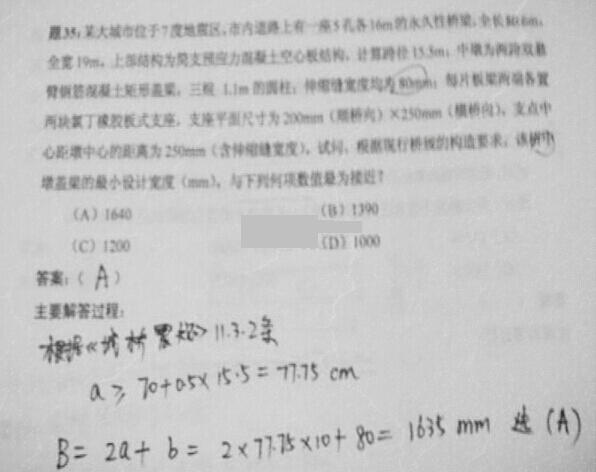 题35:某大城市位于7度地震区,市内道路上有一座5孔各16m的永久性桥梁,全长80.6m,
全宽19m。上部结构为简支预应力混凝土空心板结构,计算跨径15.5m;中墩为两跨双悬
臂钢筋混凝土矩形盖梁,三根1.1m的圆柱;伸缩缝宽度均为80mm;每片板梁两端各置
两块氯丁橡胶板式支座,支座平面尺寸为200mm(顺桥向)×250mm(横桥向),支点中
心距墩中心的距离为250mm(含伸缩缝宽度)。试问,根据现行桥规的构造要求,该桥中
墩盖梁的最小设计宽度(mm),与下列何项数值最为接近?
(A)1640 (B)1390
(C)1200 (D)1000
答案:(A)
主要解答过程:
根据《城桥震规》11.3.2条
a≥70+0.5×15.5=77.75 cm
B=2a+b=2×77.75×10+80=1635 mm 选(A)